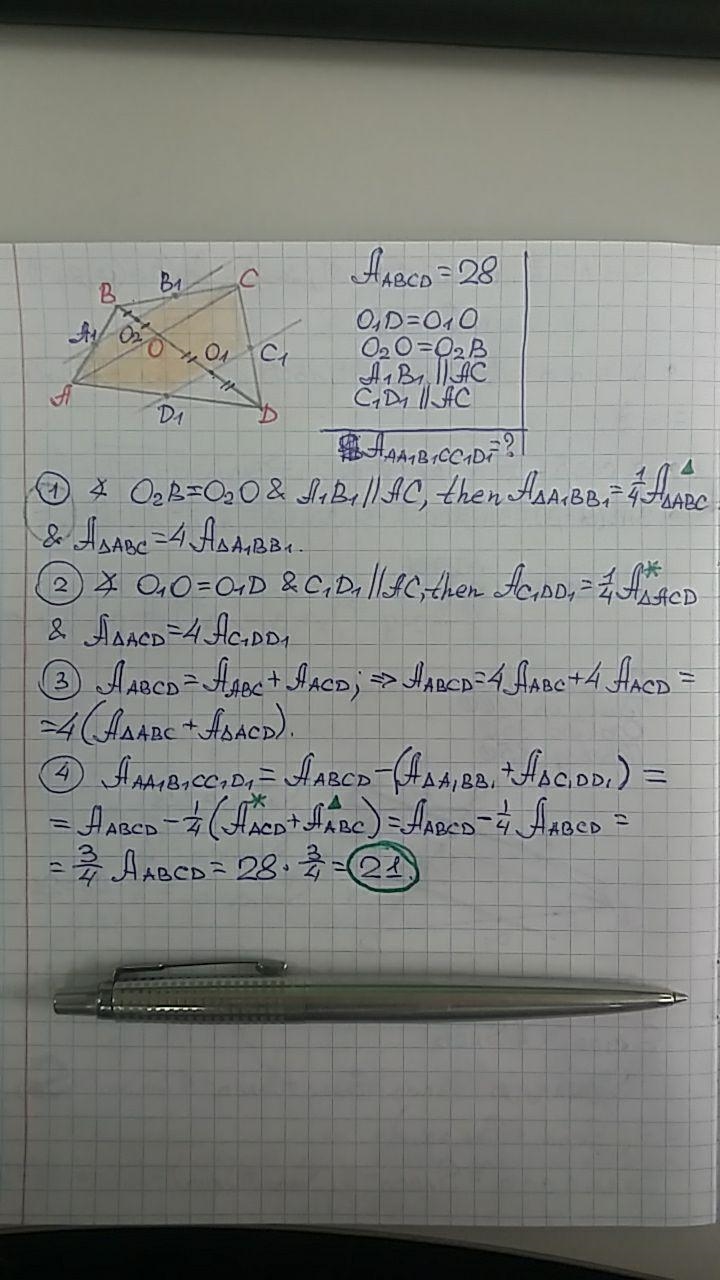 B
B1
C
A1
O2
O
O1
C1
A
D1
D
A_ABCD = 28
O1D = O1O
O2O = O2B
A1B1 || AC
C1D1 || AC
A_AA1B1CC1D1 = ?
① ∡ O2B = O2O & A1B1 || AC, then A_ΔA1BB1 = 1/4 A_ΔABC ▲
& A_ΔABC = 4 A_ΔA1BB1.
② ∡ O1O = O1D & C1D1 || AC, then A_C1DD1 = 1/4 A_ΔACD *
& A_ΔACD = 4 A_C1DD1
③ A_ABCD = A_ABC + A_ACD; ⇒ A_ABCD = 4 A_ABC + 4 A_ACD =
= 4 (A_ΔABC + A_ΔACD).
④ A_AA1B1CC1D1 = A_ABCD - (A_ΔA1BB1 + A_ΔC1DD1) =
= A_ABCD - 1/4 (A_ACD * + A_ABC ▲) = A_ABCD - 1/4 A_ABCD =
= 3/4 A_ABCD = 28 · 3/4 = 21.